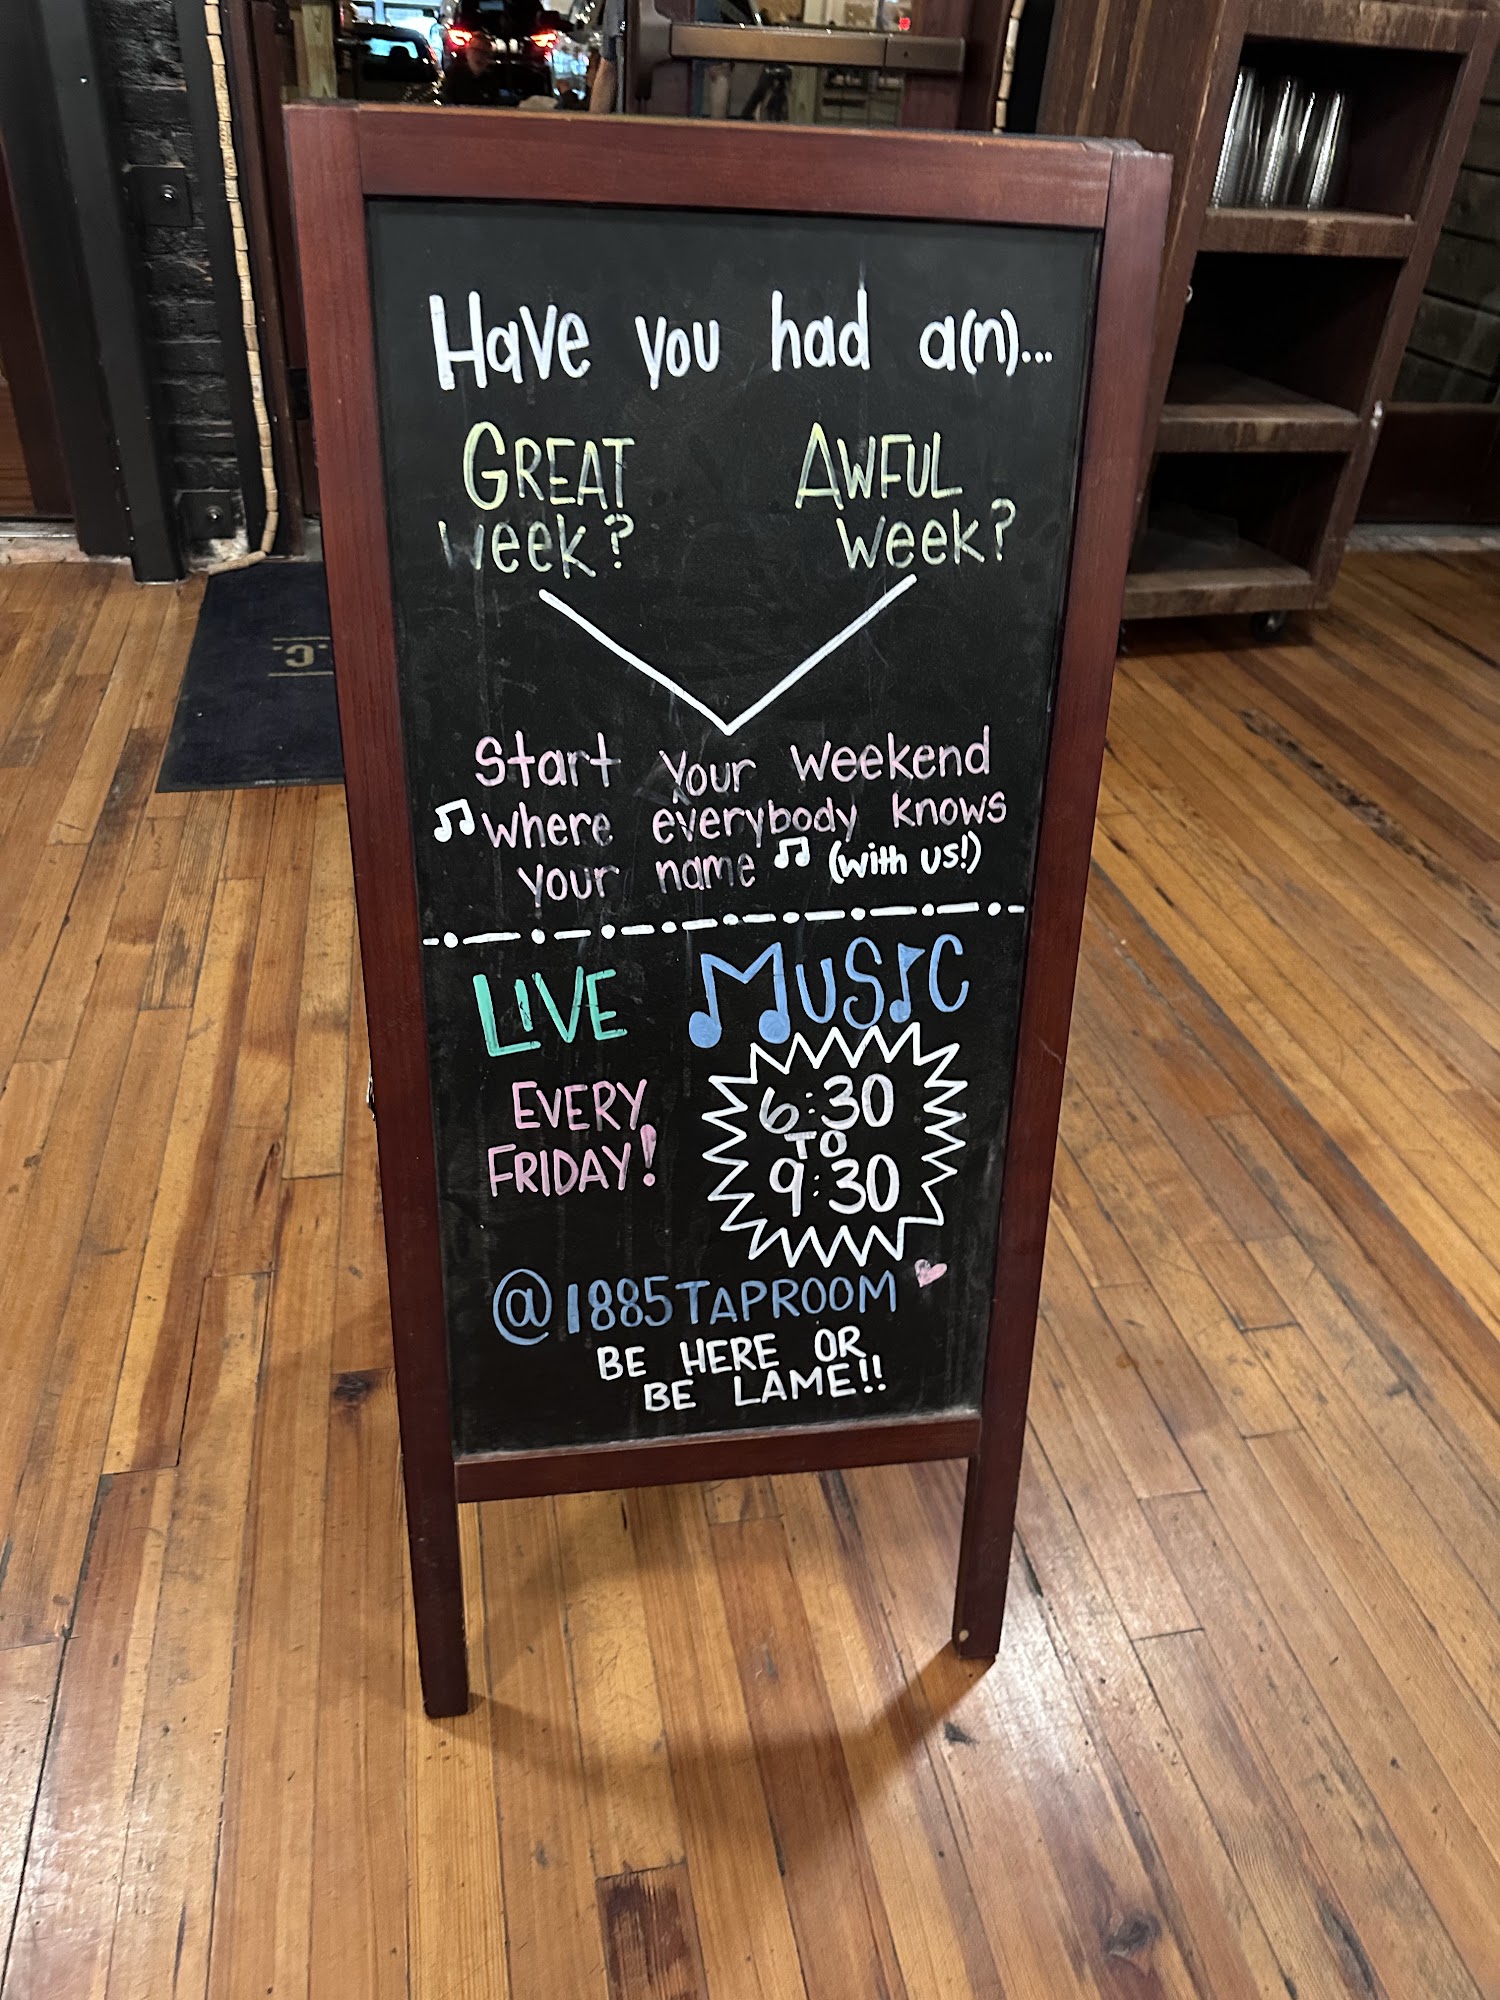 Have you had a(n)...
GREAT AWFUL
week? week?
Start your weekend
where everybody knows
your name (with us!)
LIVE MUSIC
EVERY
FRIDAY!
6:30
TO
9:30
@1885TAPROOM
BE HERE OR
BE LAME!!
.C.